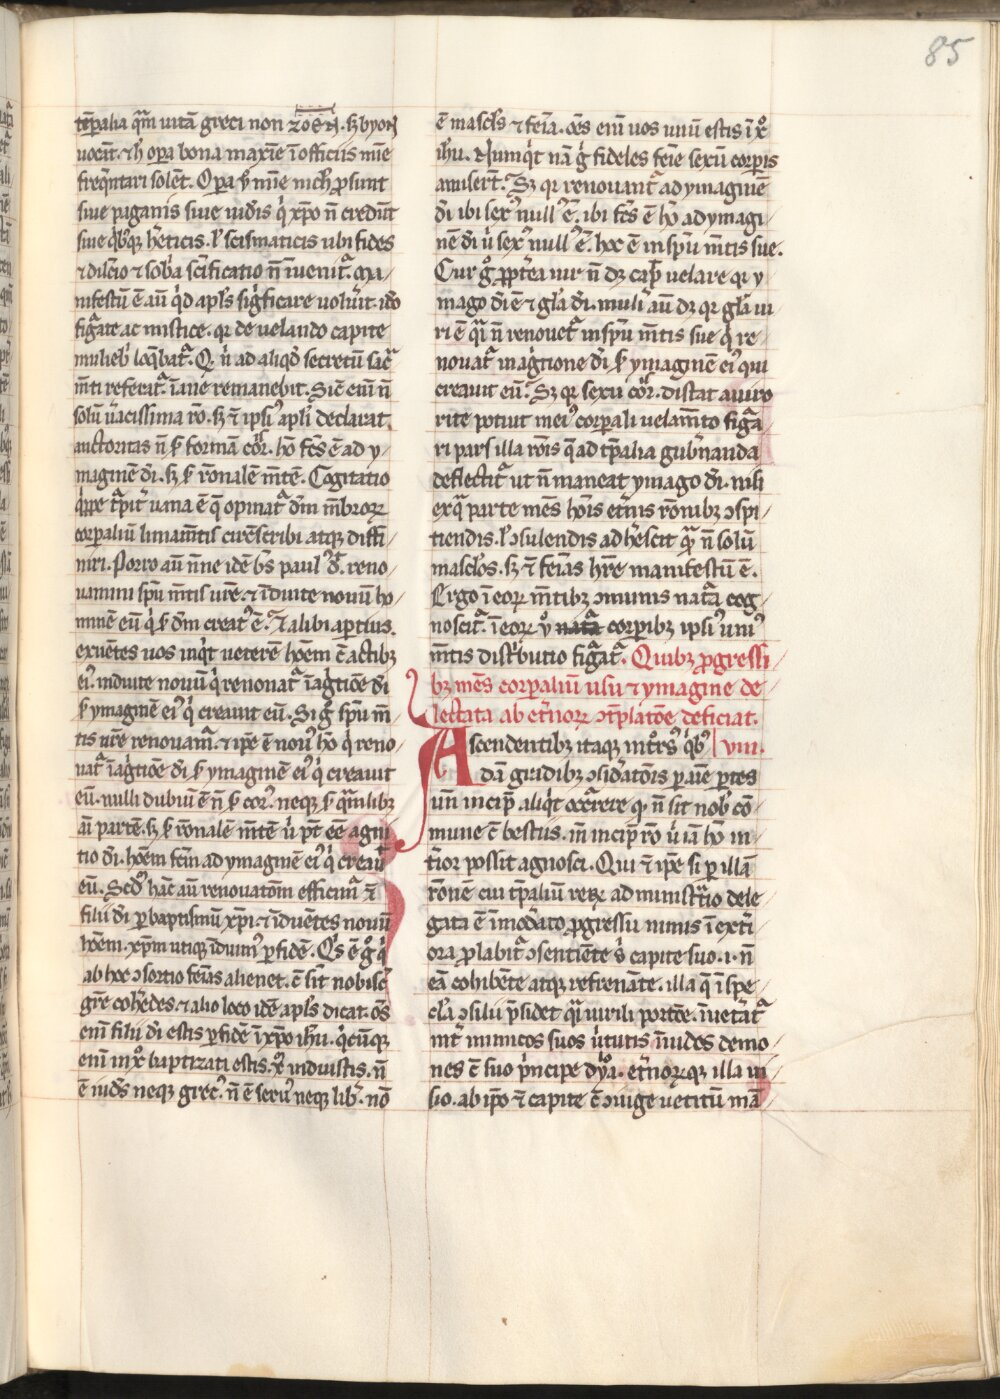 85
tēꝑalia qm̄ uitā greci non zoēn. sꝫ byon
uocāt. ⁊ h̓ oꝑa bona maxīe ī officiis mīe
freq̄ntari solēt. Oꝑa ū̓ mīe nich̓ ꝓsunt
siue paganis siue iud̓is q̓ xp̄o n̄ credūt
siue q̓busqꝫ h̓eticis. ł scismaticis ubi fides
⁊ dilc̄io ⁊ sob̓a sc̄ificatio n̄ īuenit᷑. Ma
nifestū ē aū q̓d apl̓s sig̓ficare uoluit. ido
fig̓ate ac mistice. qꝛ de uelando capite
mulieb̓ loq̄bat᷑. Q n̓ ad aliqd̓ secretū sac̓
mti referat᷑. īane remanebit. Sic̄ eni n̄
solū u̓acissima ro̓. sꝫ ⁊ ipsi᷒ apl̓i declarat
auctoritas n̄ ẜ formā cor̓. ho̓ fc̄s ē ad y
maginē dī. sꝫ ẜ ro̓nalē mtē. Cogitatio
q̓ppe t᷑pit᷑ uana ē q̄ opinat᷑ dm̄ mb̓roꝝ
corꝑaliū liniamtis circūscribi atqꝫ diffi
niri. Porro aū nn̄e idē bs̄ paul᷒ d̓. reno
uamini spū mtis ur̄e. ⁊ īduite nouū ho
minē eū q̓ ẜ dm̄ creat᷒ ē. ⁊ alibi aꝑtius.
exuētes uos inq̓t ueterē ho̓em c̄ actibꝫ
ei᷒. induite nouū q̓ renouat᷑ ī ag̓tiōe dī
ẜ ymaginē ei᷒ q̓ creauit eū. Si g̓ spū m̄
tis ur̄e renouam᷑. ⁊ ipe ē nou᷒ ho̓ q̓ reno
uat᷑ ī ag̓tiōe dī ẜ ymaginē ei᷒ q̓ creauit
eū. nulli dubiū ē n̄ ẜ cor᷒. neqꝫ ẜ q̄mlibꝫ
aī partē. sꝫ ẜ ro̓nalē mtē u̓ pt̄ ēē agni
tio dī. ho̓em fcm̄ ad ymaginē ei᷒ q̓ creauit
eū. Scd̓m hāc aū renouatōm efficim᷑ ⁊
filii dī ꝑ baptismū xp̄i. ⁊ īduētes nouū
ho̓em. xp̄m utiqꝫ īduim᷒ ꝑ fidē. Q̓s ē g̓ q̓
ab hoc ↄsortio feīas alienet. c̄ sīt nobisc̄
gr̄e coh̓edes. ⁊ alio loco idē apl̓s dicat. oēs
eni filii dī estis ꝑ fidē ī xp̄o ihu. q̓cūqꝫ
eni ī xo̓ baptizati estis. xo̓ induistis. n̄
ē iud̓s neqꝫ grec᷒. n̄ ē seru᷒ neqꝫ lib̓. no
ē mascl̓s ⁊ feīa. oēs eni uos unū estis ī xo̓
ihu. Nunq̓t nā g̓ fideles feīe sexū corꝑis
amiser̄t. Sꝫ qꝛ renouant᷑ ad ymaginē
dī ibi sex᷒ null᷒ ē. ibi fc̄s ē ho̓ ad ymagi
nē dī u̓ sex᷒ null᷒ ē. hoc ē in spū mtis sue.
Cur g̓ ꝓpt̓ea uir n̄ dꝫ caput uelare qꝛ y
mago dī ē ⁊ gl̓a dī. muli᷒ aū dꝫ qꝛ gl̓a ui
ri ē q̓i n̄ renouet᷑ in spū mtis sue q̓ re
nouat᷑ in ag̓tione dī ẜ ymaginē ei᷒ qui
creauit eū. Sꝫ qꝛ sexū cor̓. distat a uiro
rite potuit in ei᷒ corꝑali uelamto fig̓a
ri pars illa ro̓is q̄ ad tꝑalia gub̓nanda
deflectit᷑ ut n̄ maneat ymago dī. nisi
ex q̓ parte mēs ho̓is et̓nis ro̓nibꝫ ↄspi
tiendis. ł ↄsulendis adh̓escit q̄ n̄ solū
mascl̓os. sꝫ ⁊ feīas hr̄e manifestū ē.
Ergo ī eoꝝ mtibꝫ ↄmunis nat᷑a cog
noscit᷑. ī eoꝝ u̓o nat᷑a corꝑibꝫ ipsi᷒ uni᷒
mtis dist̓butio fig̓at᷑. Quibꝫ ꝓgressi
bꝫ mēs corꝑaliū usu ⁊ ymagine de
lectata ab et̓noꝝ ↄtēplatōe deficiat.
Ascendentibꝫ itaqꝫ int̓rs᷒ q̓b᷒ viii.
dā gradibꝫ ↄsid̓atōis ꝑ aīe ꝑtes
un̄ incipit aliq̓t occ᷑rere q̄ n̄ sit nob̓ cō
mune c̄ bestiis. in̄ incipit ro̓ u̓ iā ho̓ in
t̓ior possit agnosci. Qui ⁊ ipe si ꝑ illā
ro̓nē cui tꝑaliū reꝝ administ̓tio dele
gata ē īmod̓ato ꝓgressu nimis ī ext̓i
ora ꝓlabit᷑ ↄsentiēte s̓ capite suo. i. n̄
eā cohibēte atqꝫ refrenāte. illa q̄ ī spe
cl̓a ↄsilii p̄sidet q̓i uirili portōe. īuet᷑at᷑
int̓ inimicos suos ūtutis īuid̓s demo
nes c̄ suo p̓ncipe dy̓o. et̓noꝝqꝫ illa ui
sio. ab ip̄o ⁊ capite c̄ ↄiuge uetitū mā